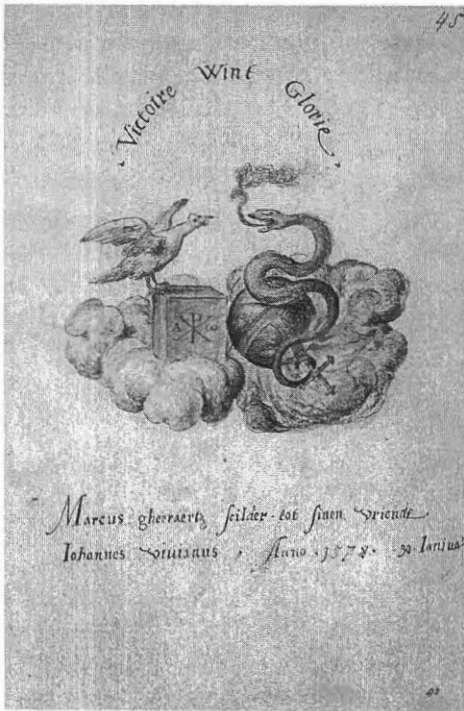 45
Victoire Wint Glorie
A ω
Marcus gheeraerts scilder tot sinen vriendt
Iohannes vivianus, Anno .1578.